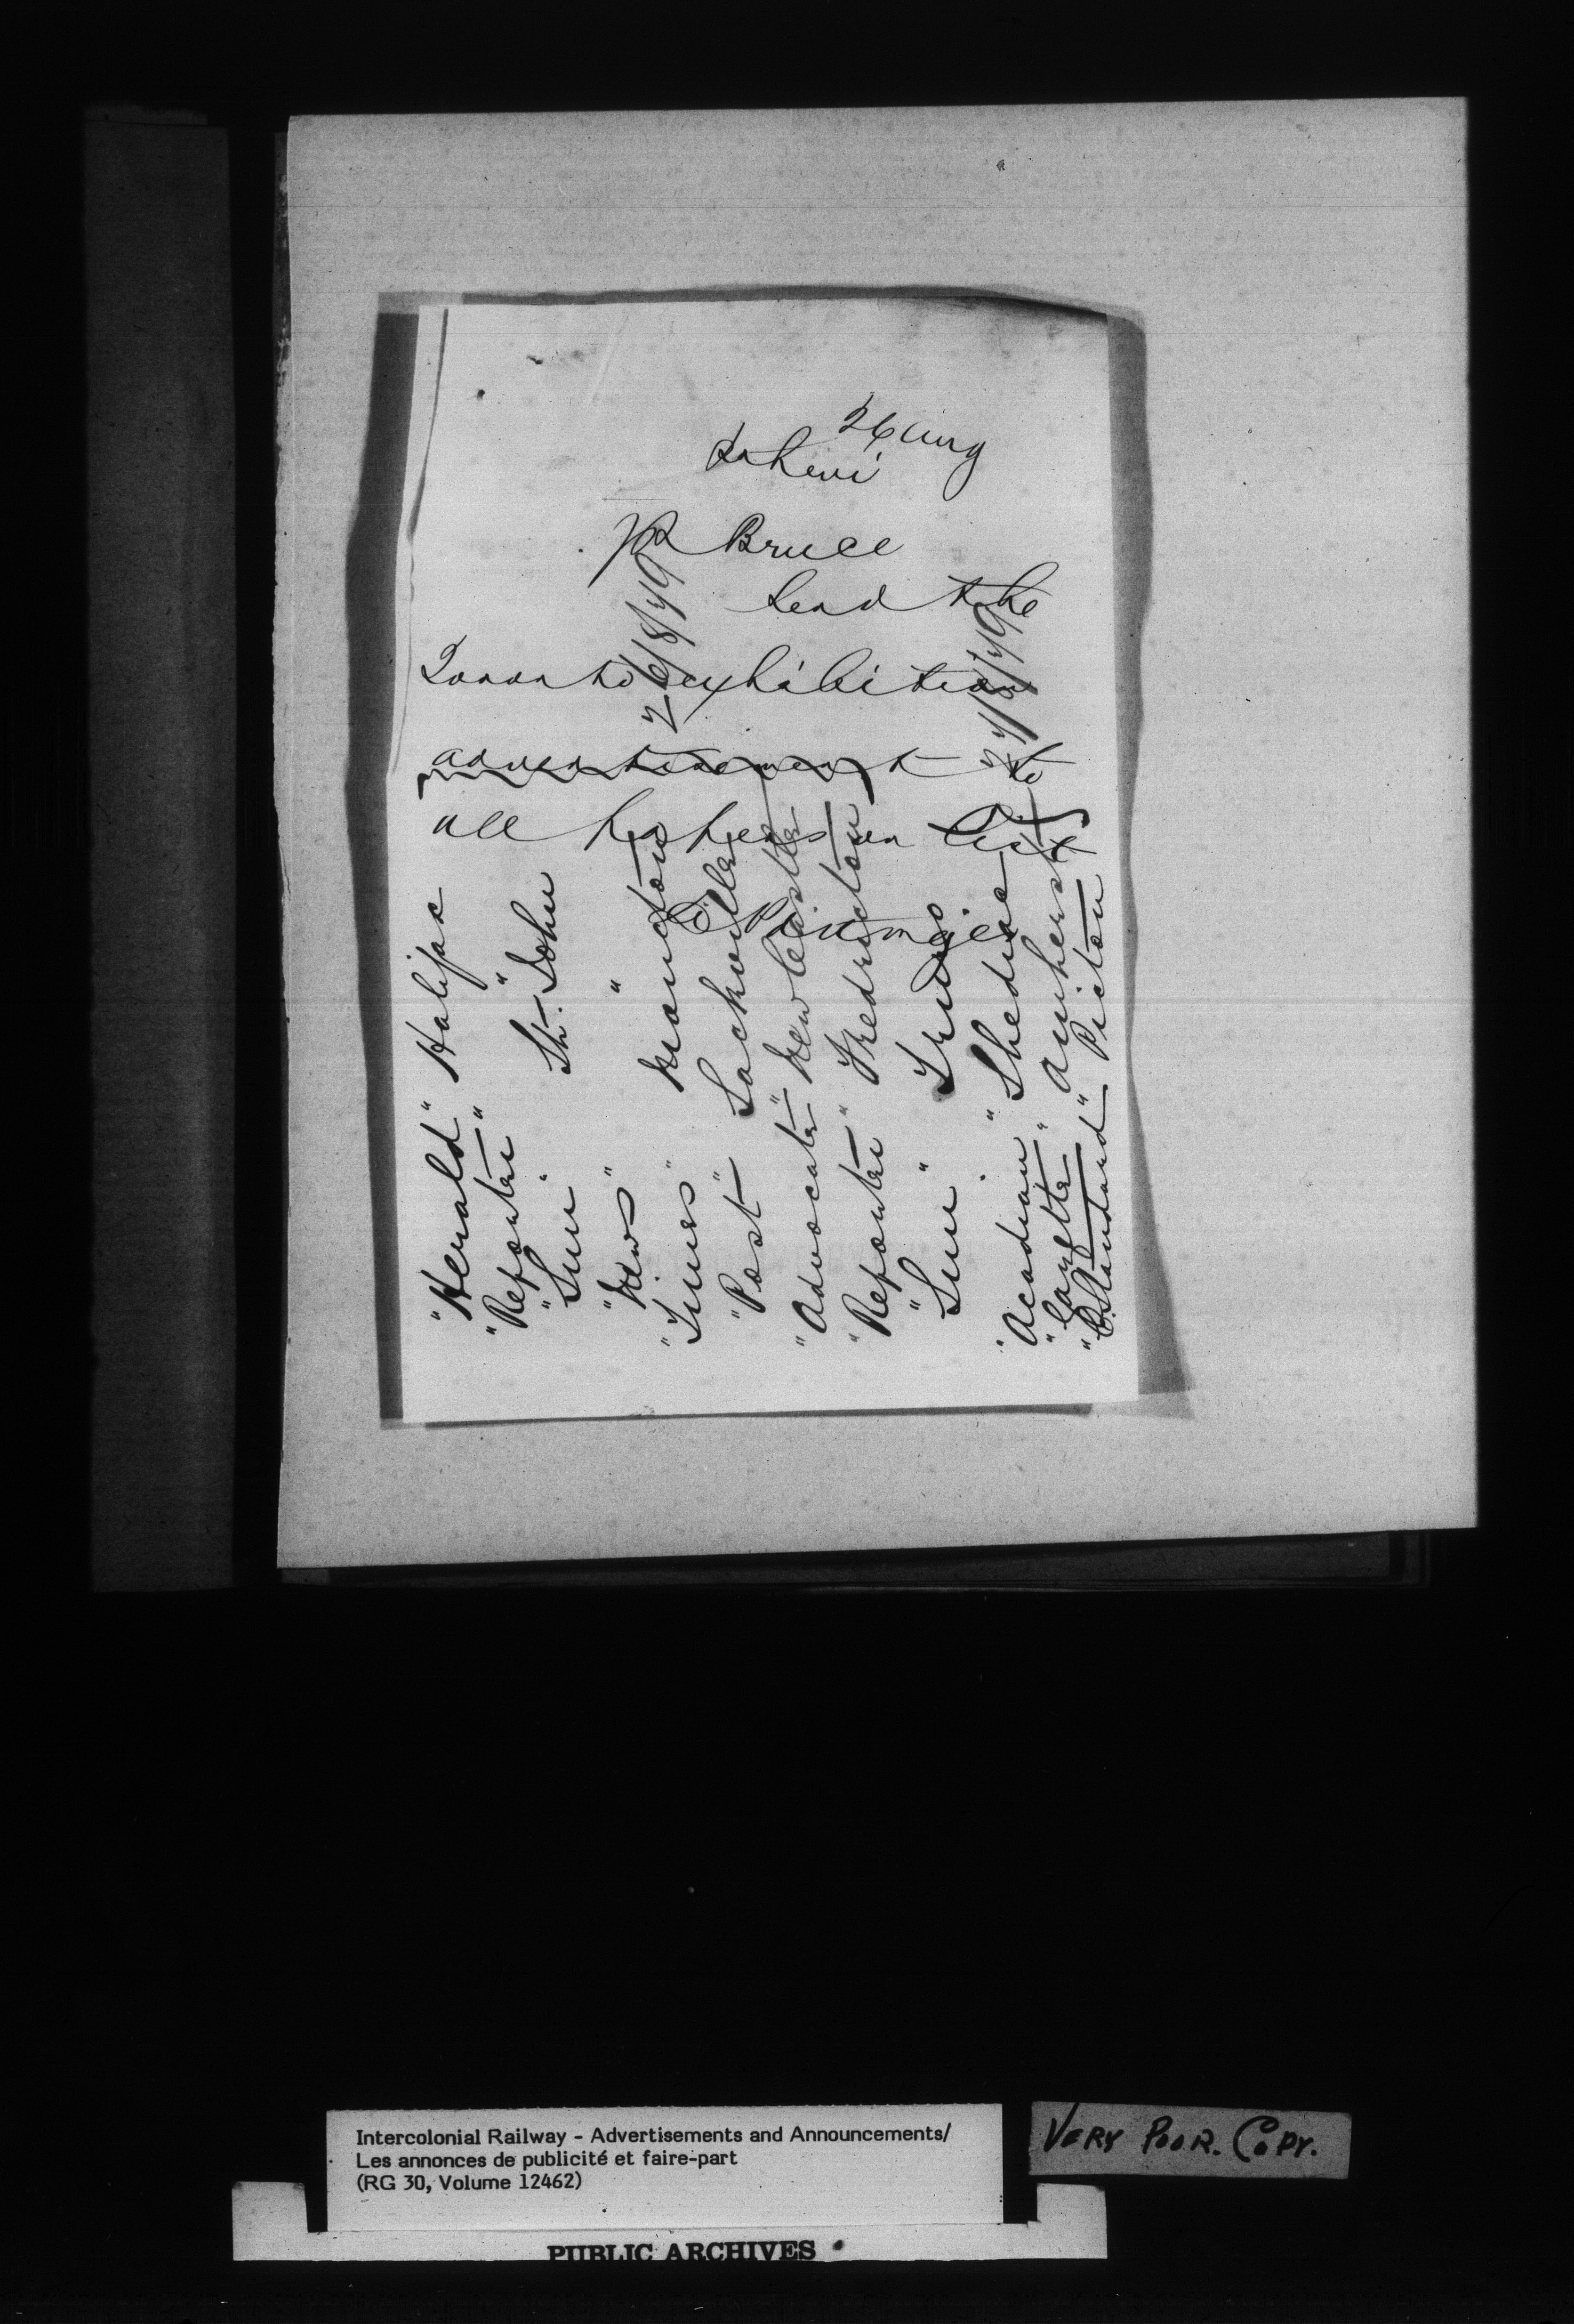 26 Aug
JR Bruce
Send the
Toronto exhibition
advertisement to
all papers on list
26/8/79
27/8/79
"Herald" Halifax
"Reporter" "
"Sun" St. John
"News" "
"Times" Moncton
"Post" Sackville
"Advocate" Newcastle
"Reporter" Fredricton
"Sun" Truro
"Acadian" Shediac
"Gazette" Amherst
"C. Standard" Pictou
Intercolonial Railway - Advertisements and Announcements/
Les annonces de publicité et faire-part
(RG 30, Volume 12462)
VERY POOR. COPY.
PUBLIC ARCHIVES